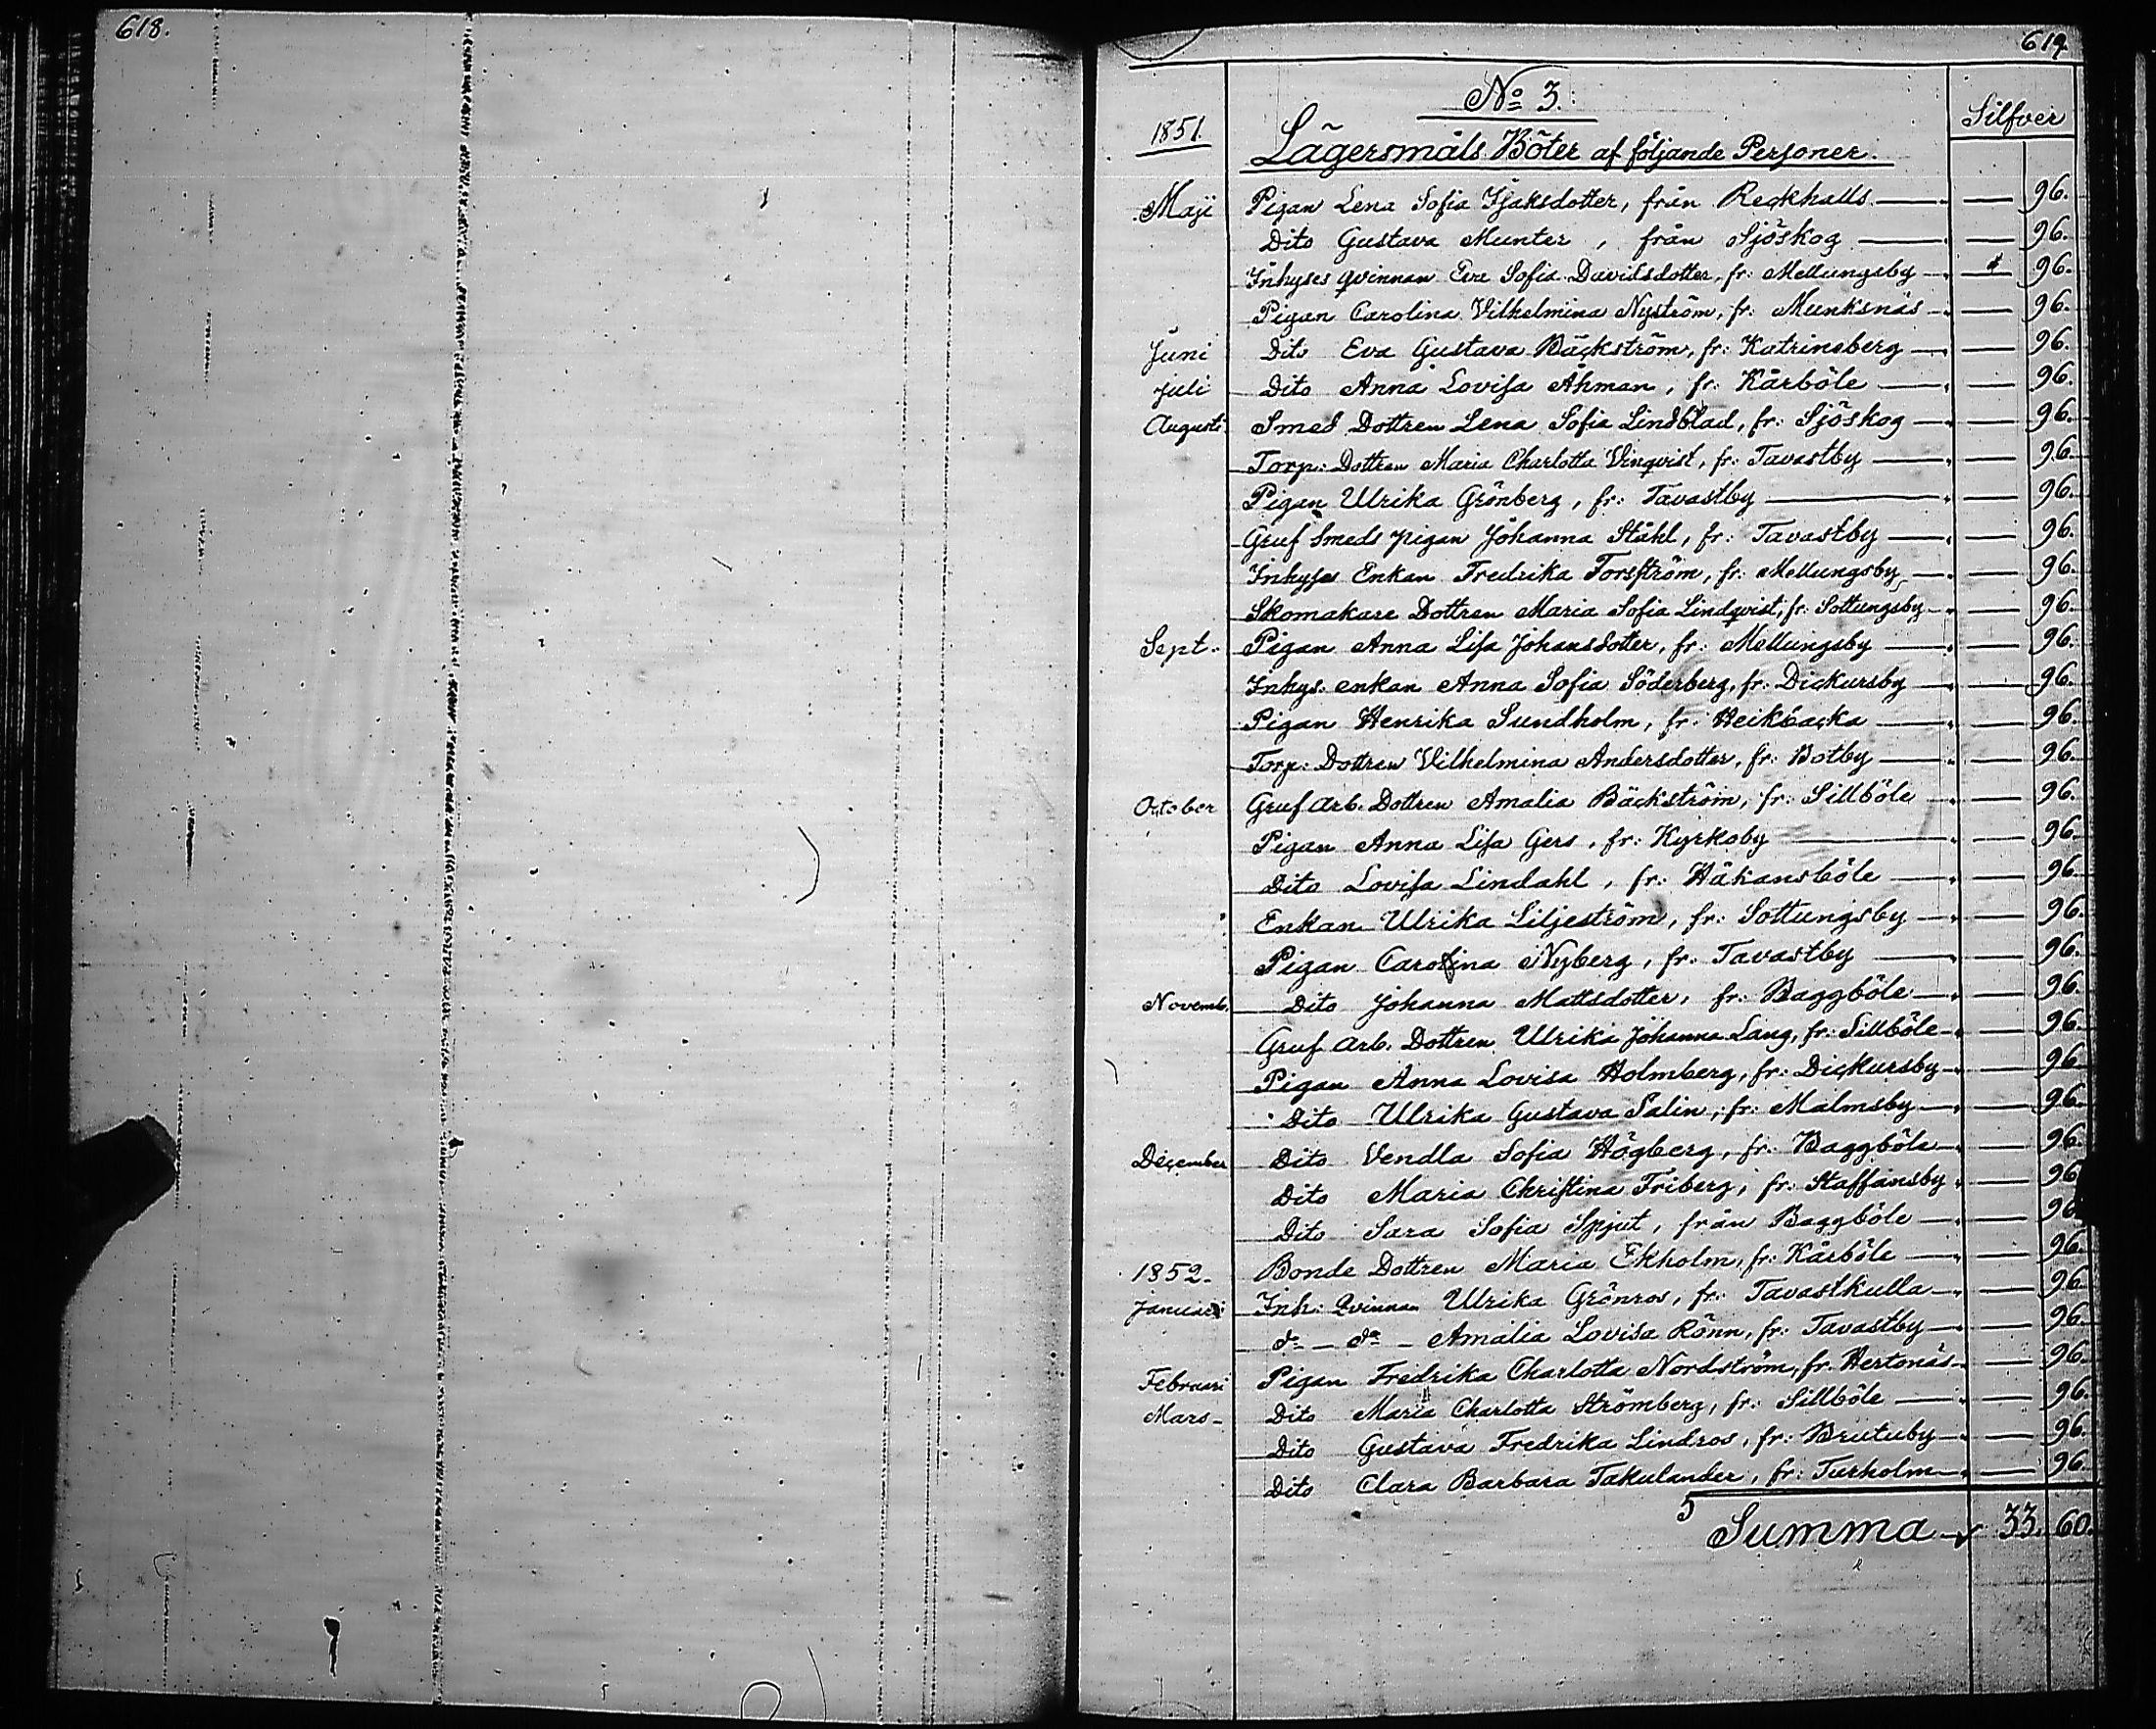 618.
619.
No 3.
Silfver
1851.
Lägersmåls Böter af följande Personer.
Maji Pigan Lena Sofia Isaksdotter, från Reckhalls — — 96.
Dito Gustava Munter, från Sjöskog — — 96.
Inhyses qvinnan Eva Sofia Davidsdotter, fr: Mellungsby — — 96.
Pigan Carolina Vilhelmina Nyström, fr: Munksnäs — — 96.
Juni Dito Eva Gustava Bäckström, fr: Katrineberg — — 96.
Juli Dito Anna Lovisa Åhman, fr: Kårböle — — 96.
Augusti Smed Dottren Lena Sofia Lindblad, fr: Sjöskog — — 96.
Torp: Dottren Maria Charlotta Vinqvist, fr: Tavastby — — 96.
Pigan Ulrika Grönberg, fr: Tavastby — — 96.
Gruf Smeds pigan Johanna Ståhl, fr: Tavastby — — 96.
Inhyses Enkan Fredrika Forsström, fr: Mellungsby — — 96.
Skomakare Dottren Maria Sofia Lindqvist, fr: Sottungsby — — 96.
Sept. Pigan Anna Lisa Johansdotter, fr: Mellungsby — — 96.
Inhys. enkan Anna Sofia Söderberg, fr: Dickursby — — 96.
Pigan Henrika Sundholm, fr: Heikbacka — — 96.
Torp: Dottren Vilhelmina Andersdotter, fr: Botby — — 96.
October Gruf arb. Dottren Amalia Bäckström, fr: Sillböle — — 96.
Pigan Anna Lisa Gers, fr: Kyrkoby — — 96.
Dito Lovisa Lindahl, fr: Håkansböle — — 96.
Enkan Ulrika Liljeström, fr: Sottungsby — — 96.
Pigan Carolina Nyberg, fr: Tavastby — — 96.
Novemb. Dito Johanna Mattsdotter, fr: Baggböle — — 96.
Gruf arb. Dottren Ulrika Johanna Lang, fr: Sillböle — — 96.
Pigan Anna Lovisa Holmberg, fr: Dickursby — — 96.
Dito Ulrika Gustava Salin, fr: Malmsby — — 96.
December Dito Vendla Sofia Högberg, fr: Baggböle — — 96.
Dito Maria Christina Friberg, fr: Staffansby — — 96
Dito Sara Sofia Spjut, från Baggböle — — 96
1852. Bonde Dottren Maria Ekholm, fr: Kårböle — — 96.
Januari Inh: Qvinnan Ulrika Grönros, fr: Tavastkulla — — 96.
do — do — Amalia Lovisa Rönn, fr: Tavastby — — 96.
Februari Pigan Fredrika Charlotta Nordström, fr: Hertonäs — — 96.
Mars Dito Maria Charlotta Strömberg, fr: Sillböle — — 96.
Dito Gustava Fredrika Lindros, fr: Brutuby — — 96.
Dito Clara Barbara Takulander, fr: Turholm — — 96.
Summa 33. 60.